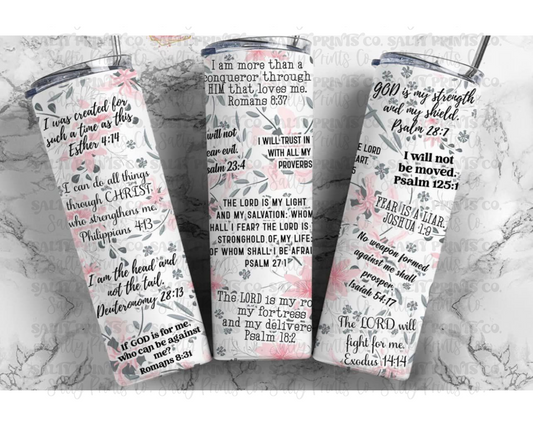 I was created for
such a time as this
Esther 4:14
I can do all things
through CHRIST
who strengthens me.
Philippians 4:13
I am the head and
not the tail.
Deuteronomy 28:13
If GOD is for me,
who can be against
me?
Romans 8:31
I am more than a
conqueror through
HIM that loves me.
Romans 8:37
will not
ear evil.
salm 23:4
I WILL TRUST IN
WITH ALL MY
PROVERBS
THE LORD IS MY LIGHT
AND MY SALVATION; WHOM
HALL I FEAR? THE LORD IS
STRONGHOLD OF MY LIFE;
OF WHOM SHALL I BE AFRAI
PSALM 27:1
The LORD is my ro
my fortress
and my delivere
Psalm 18:2
GOD is my strength
and my shield.
Psalm 28:7
HE LORD
ART.
I will not
be moved.
Psalm 125:1
FEAR IS A LIAR.
JOSHUA 1:9
No weapon formed
against me shall
prosper.
Isaiah 54:17
The LORD will
fight for me.
Exodus 14:14
SALTY PRINTS CO.